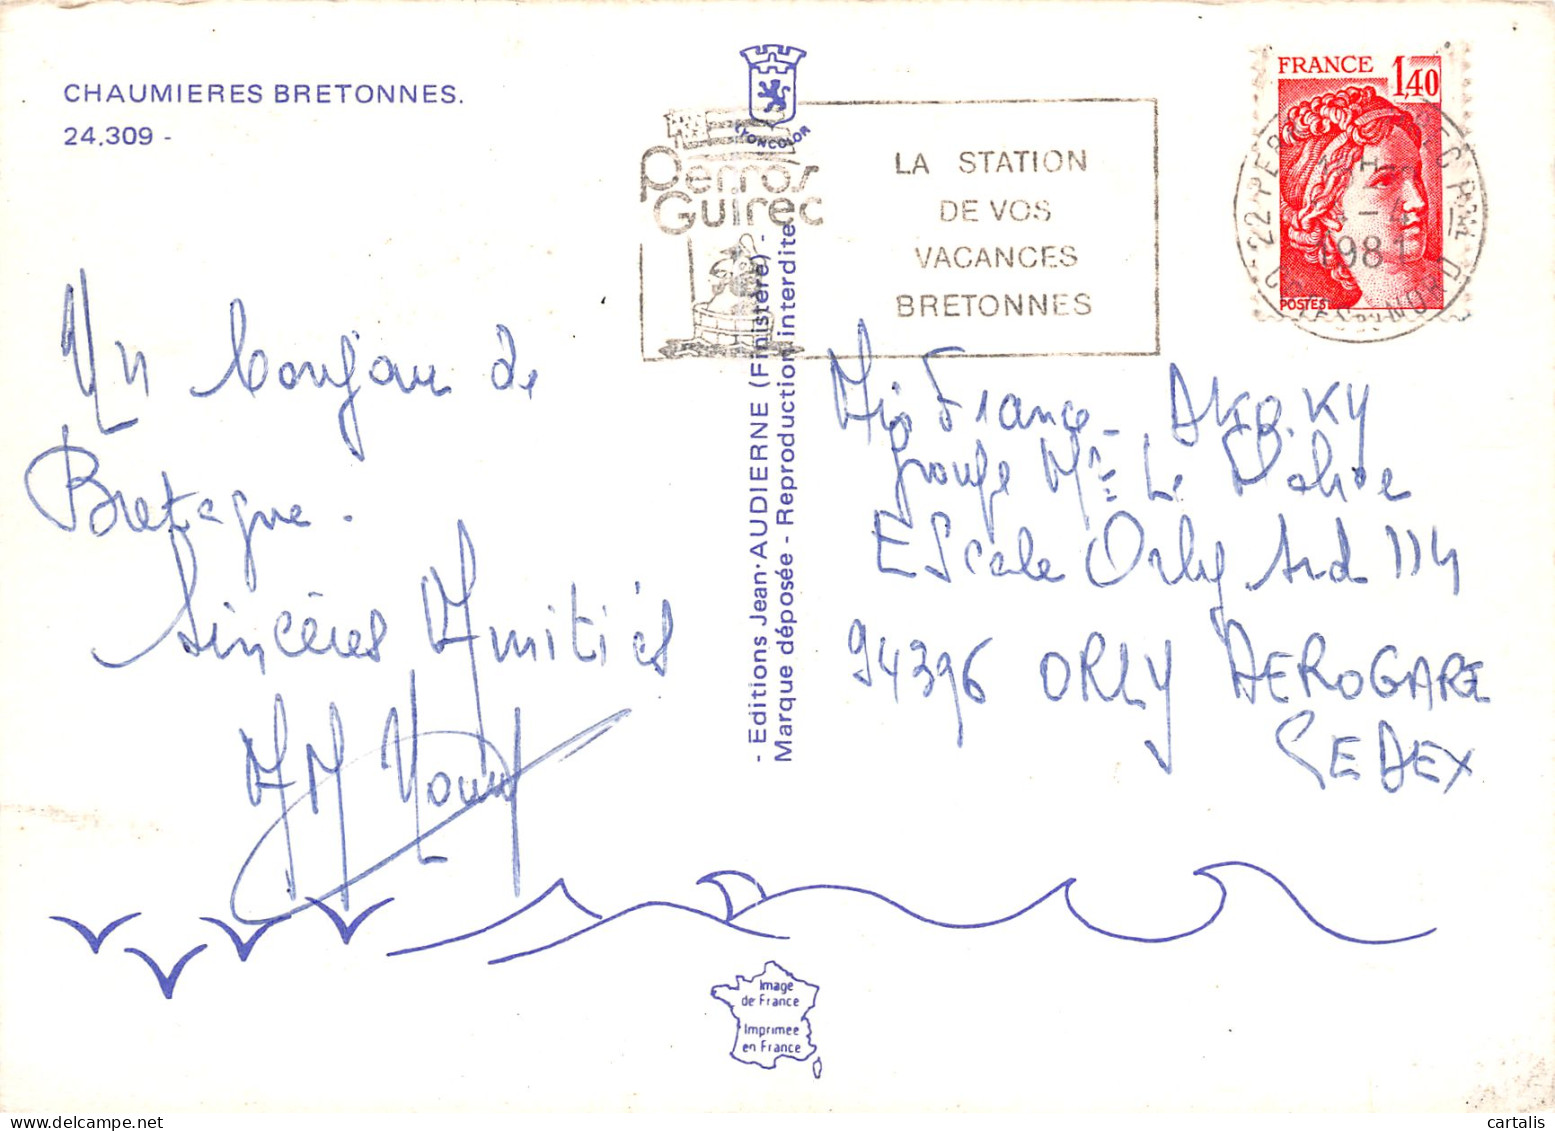 CHAUMIERES BRETONNES.
24.309 -
LYONCOLOR
Perros
Guirec
LA STATION
DE VOS
VACANCES
BRETONNES
FRANCE 1,40
POSTES
22 PERROS GUIREC
1981
Un bonjour de
Bretagne.
Sincères Amitiés
- Editions Jean-AUDIERNE (Finistère) -
Marque déposée - Reproduction interdite
Air France - AKO.KY
Groupe Mr Le
Escale Orly Sud 114
94396 ORLY AEROGARE
CEDEX
Image
de France
Imprimee
en France
cartalis